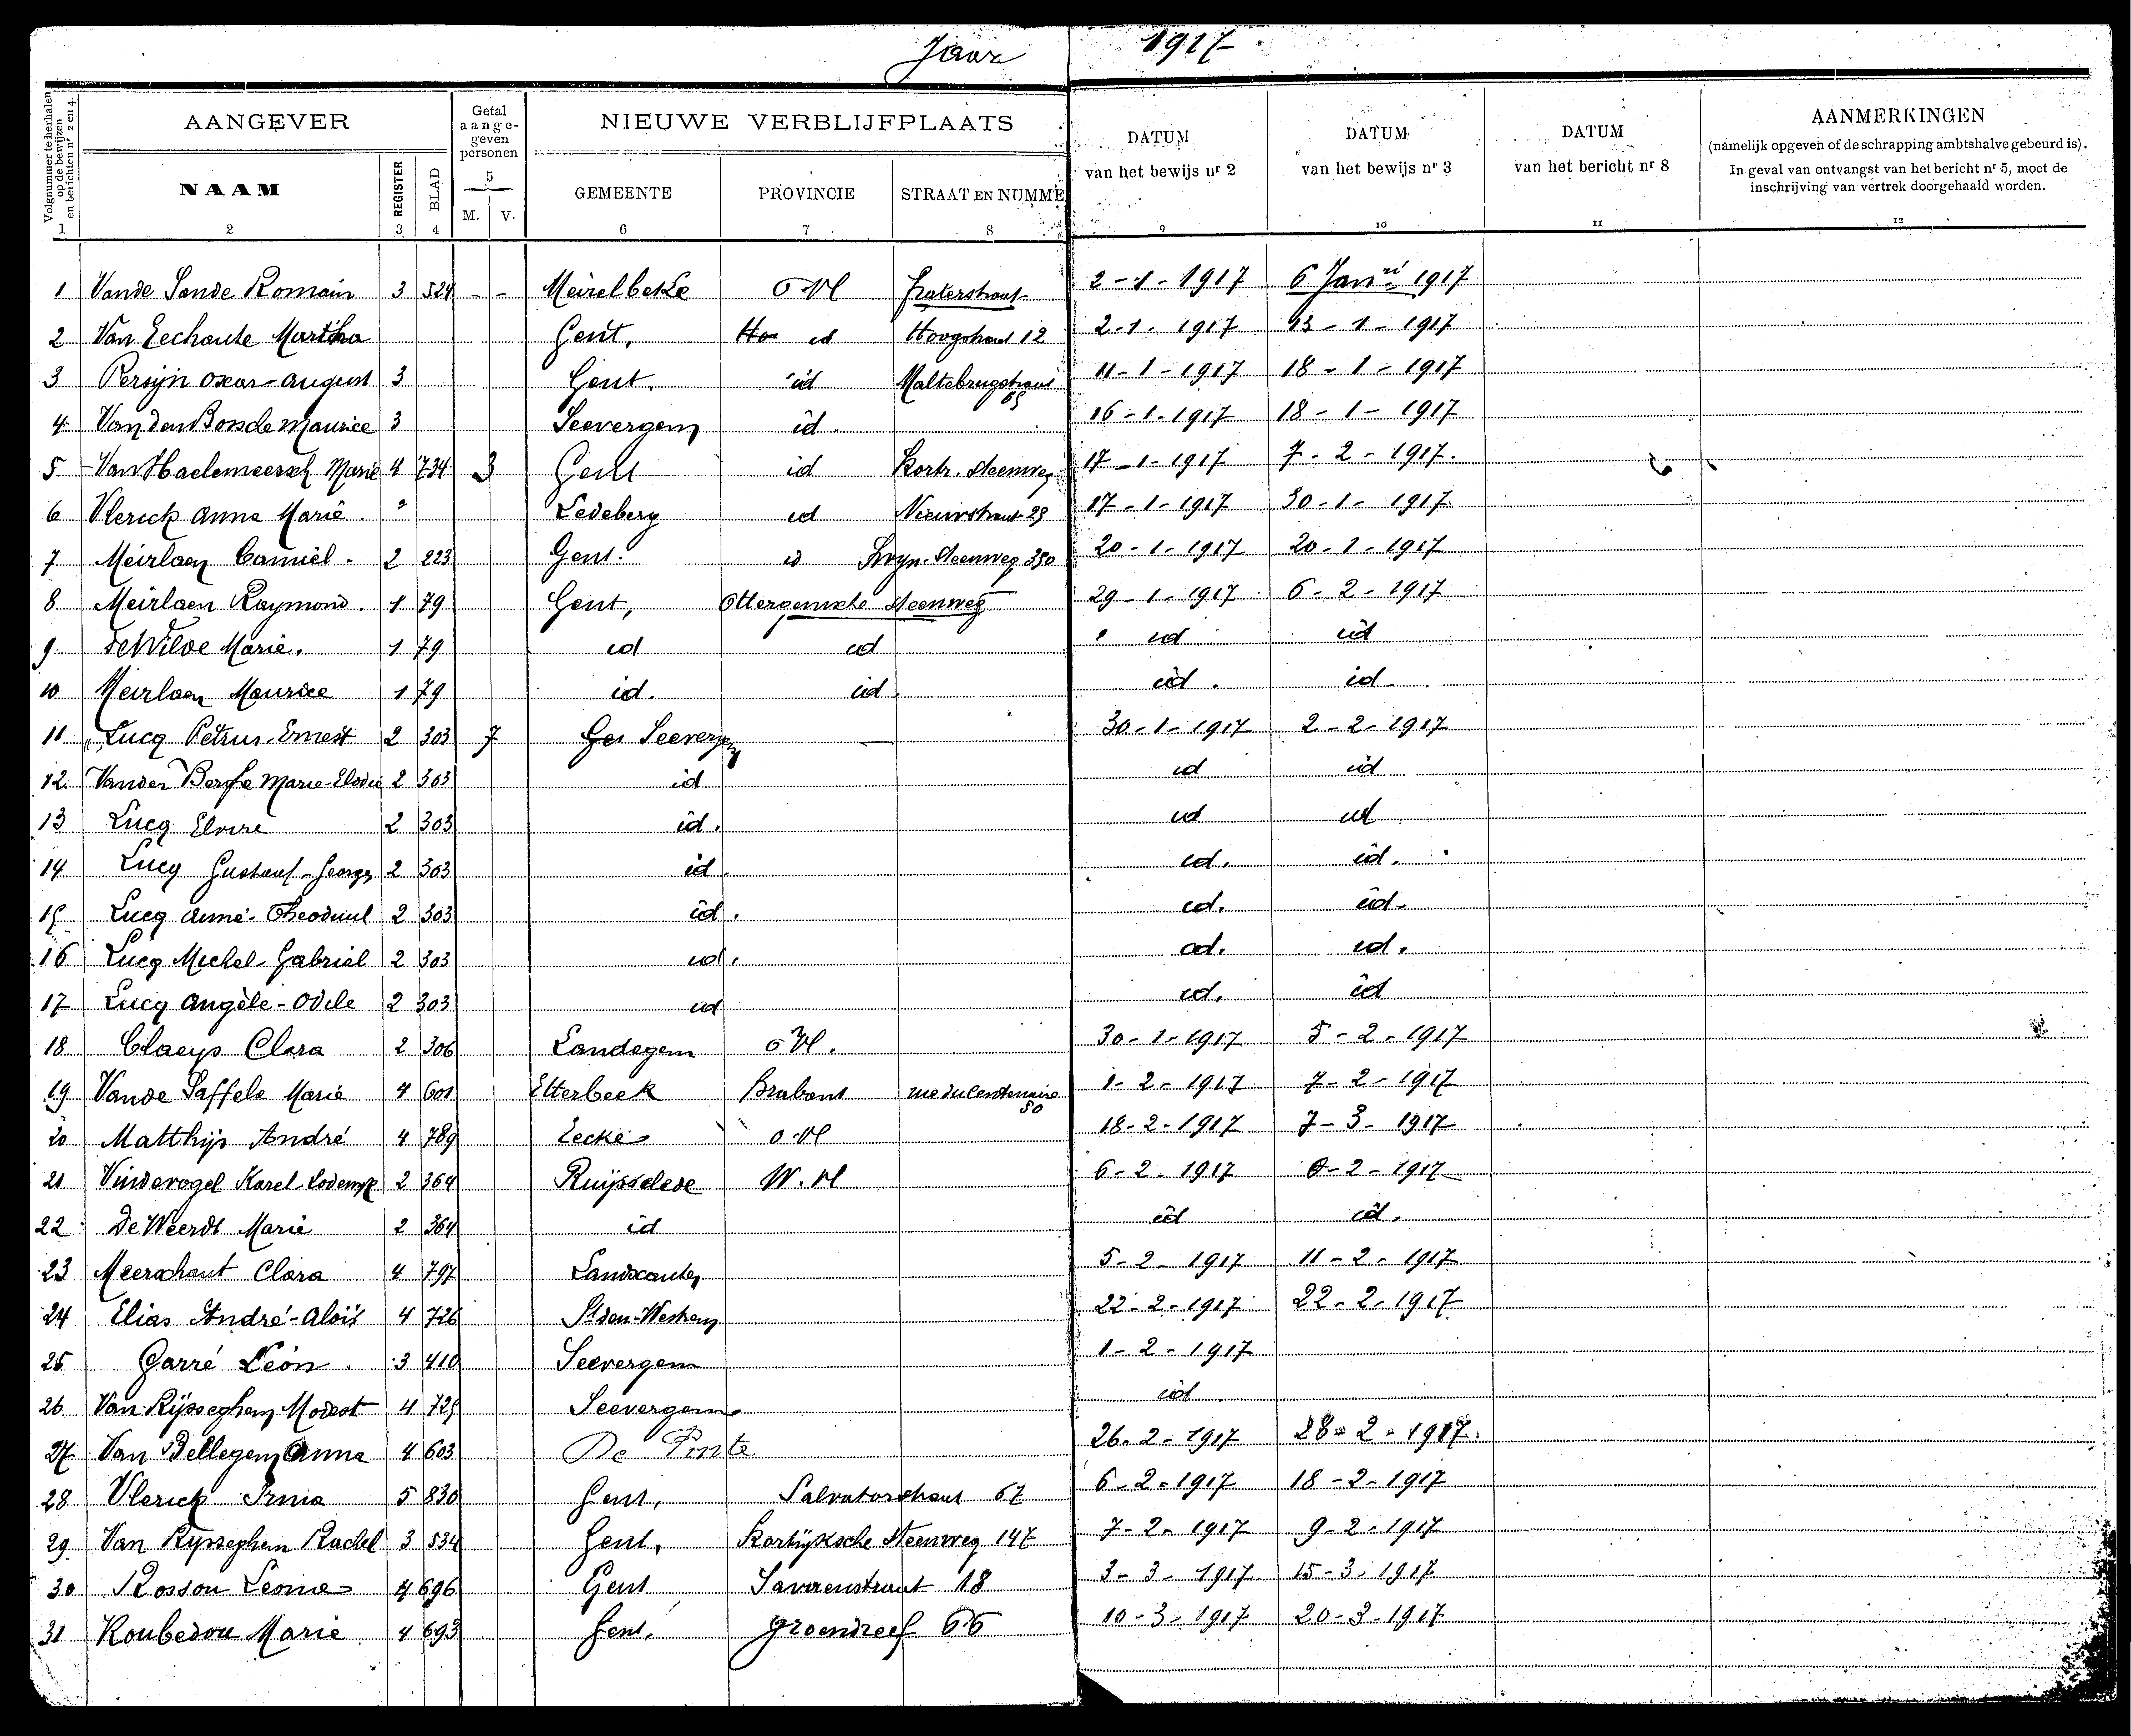 Jaar 1917
Volgnummer te herhalen op de bewijzen en berichten nrs 2 en 4
AANGEVER
Getal aange-geven personen
NIEUWE VERBLIJFPLAATS
DATUM van het bewijs nr 2
DATUM van het bewijs nr 3
DATUM van het bericht nr 8
AANMERKINGEN
(namelijk opgeven of de schrapping ambtshalve gebeurd is).
In geval van ontvangst van het bericht nr 5, moet de inschrijving van vertrek doorgehaald worden.
NAAM REGISTER BLAD 5 M. V. GEMEENTE PROVINCIE STRAAT EN NUMME
1 2 3 4 6 7 8 9 10 11 12
1 Vande Sande Romain 3 524 - - Meirelbeke O Vl fraterstraat 2-1-1917 6 Janri 1917
2 Van Eechaute Martha Gent, id Hoogstraat 12 2-1-1917 13-1-1917
3 Persijn Oscar-August 3 Gent. id Maltebrugstraat 11-1-1917 18-1-1917
4 Van den Bossche Maurice 3 Seevergem id. 16-1-1917 18-1-1917
5 Van Haelemeersch Marie 4 734 3 Gent id Kortr. Steenweg 17-1-1917 7-2-1917.
6 Vlerick Anna Marie Ledeberg id Nieuwstraat 29 17-1-1917 30-1-1917
7 Meirlaen Camiel. 2 223 Gent. id Steenweg 350 20-1-1917 20-1-1917
8 Meirlaen Raymond. 1 79 Gent, Ottergemsche Steenweg 29-1-1917 6-2-1917
9. De Wilde Marie. 1 79 id id id id
10 Meirlaen Maurice 1 79 id. id id. id
11 Lucq Petrus-Ernest 2 303 7 Ge Seevergem 30-1-1917 2-2-1917
12. Vanden Berghe Marie-Elodie 2 303 id id id
13 Lucq Elvire 2 303 id. id id
14 Lucq Gustaaf-Georges 2 303 id id. id.
15 Lucq Aimé- 2 303 id. id. id
16 Lucq Michel-Gabriel 2 303 id. id. id.
17 Lucq Angèle-Odile 2 303 id id. id
18 Claeys Clara 2 306 Landegem O Vl. 30-1-1917 5-2-1917
19 Vande Saffele Marie 4 601 Etterbeek Brabant rue du Centenaire 50 1-2-1917 7-2-1917
20 Matthijs André 4 789 Eecke O.Vl 18-2-1917 7-3-1917
21 Vindevogel Karel-Lodewijk 2 364 Ruijsselede W.Vl 6-2-1917 8-2-1917
22 De Weerdt Marie 2 364 id id id.
23 Meerschaut Clara 4 797 Landscauter 5-2-1917 11-2-1917
24 Elias André-Aloïs 4 726 St den-Westrem 22-2-1917 22-2-1917
25 Garré Léon. 3 410 Seevergem 1-2-1917
26 Van Rijsseghem Modest 4 725 Seevergem id
27 Van Bellegem Anna 4 603 De Pinte 26-2-1917 28-2-1917.
28 Vlerick Irma 5 830 Gent, Salvatorstraat 67 6-2-1917 18-2-1917
29. Van Rijsseghem Rachel 3 534 Gent, Kortijksche Steenweg 147 7-2-1917 9-2-1917
30 Rosson Leonie 4 696 Gent Savaenstraat 18 3-3-1917 15-3-1917
31 Roubedou Marie 4 693 Gent. Groendreef 66 10-3-1917 20-3-1917